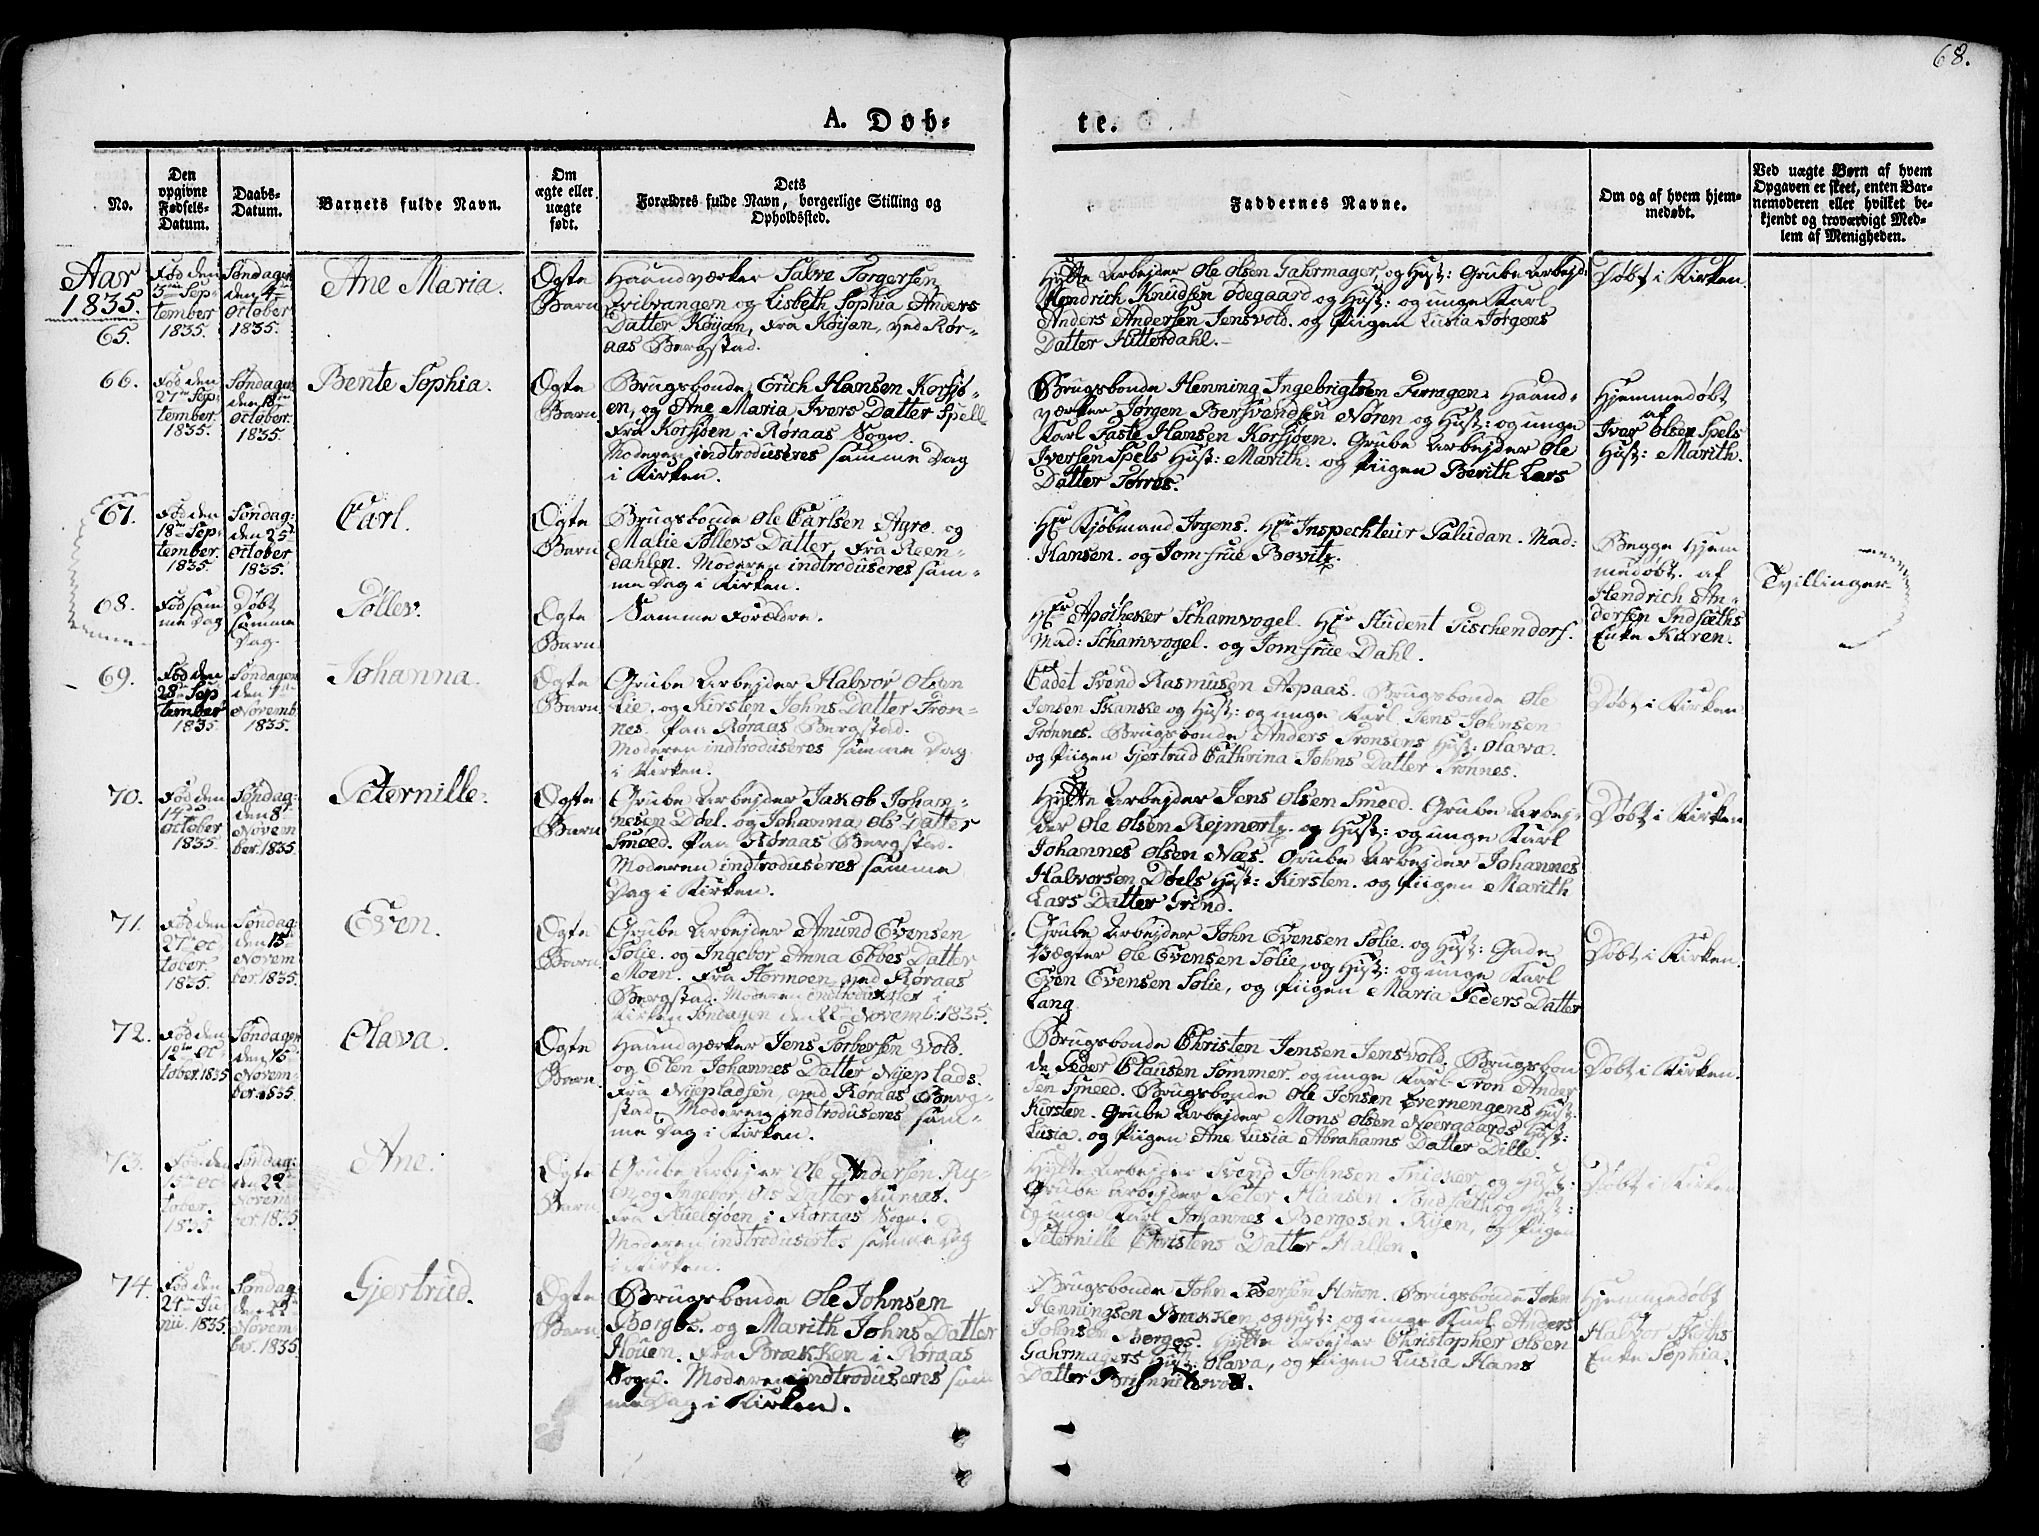 68.
A. Døb-
te.
No.
Den
opgivne
Fødsels-
Datum.
Daabs-
Datum.
Barnets fulde Navn.
Om
ægte eller
uægte
født.
Dets
Forældres fulde Navn, borgerlige Stilling og
Opholdssted.
Faddernes Navne.
Om og af hvem hjem-
medøbt.
Ved uægte Børn af hvem
Opgaven er skeet, enten Bar-
nemoderen eller hvilket be-
kjendt og troværdigt Med-
lem af Menigheden.
Aar
1835.
65.
Fød den
Sep-
tember
1835.
Søndagen
den 4de
October
1835.
Ane Maria.
Ægte
Barn
Haandværker Torgersen
og Lisbeth Sophia Anders
Datter Køijan, fra Køijan, ved Rør-
aas Bergstad.
Hytte Arbejder Ole Olsen Gahrmager, og Hust: Grube Arbejd:
Hendrich Knudsen Ødegaard og Hust: og unge Karl
Anders Andersen Jensvold. og Piigen Lusia Jørgens
Datter Hitterdahl.
Døbt i Kirken.
66.
Fød den
27de Sep-
tember.
1835.
Søndagen
den 18de
October.
1835.
Bente Sophia.
Ægte
Barn.
Brugsbonde, Erich Hansen Korsjø-
en, og Ane Maria Ivers Datter Spell
fra Korsjøen i Røraas Sogn.
Moderen indtroduseres samme Dag
i Kirken.
Brugsbonde Henning Ingebrigtsen Feragen. Haand-
værker Jørgen Bersvendsen Nøren og Hust: og unge
Karl Hansen Korsjøen. Grube Arbejder Ole
Iversen Spels Hust: Marith. og Piigen Berith Lars
Datter Torres.
Hjemmedøbt
af
Ivar Olsen Spels
Hust: Marith.
67.
Fød den
18de Sep-
tember.
1835.
Søndag:
den 25de
October
1835.
Carl.
Ægte
Barn
Brugsbonde Ole Carlsen Agre. og
Malie Tøllevs Datter, fra Reen-
dahlen. Moderen indtroduseres sam-
me Dag i Kirken.
Hr Kjøbmand Irgens. Hr Inspechteur Paludan. Mad:
Hansen. og Jomfrue Bovitz.
Begge Hjem
medøbt. af
Hendrich An-
dersen Indsæths
Enke Karen.
Tvillinger
68.
Fød sam
me Dag
Døbt
samme
Dag.
Tøllev.
Ægte
Barn.
Samme Forældre.
Hr Apotheker Schamvogel. Hr Student Tischendorf.
Mad: Schamvogel. og Jomfrue Dahl.
69.
Fød den
28de Sep
tember
1835.
Søndagen
den
Novemb.
1835.
Johanna.
Ægte
Barn.
Grube Arbejder Halvor Olsen
Lie. og Kirsten Johns Datter Trøn-
nes. paa Røraas Bergstad.
Moderen indtroduseres samme Dag
i Kirken.
Cadet Svend Rasmusen Aspaas. Brugsbonde Ole
Jensen Skanske og Hust: og unge Karl. Jens Johnsen
Trønnes. Brugsbonde Anders Tronsens Hust: Olava.
og Piigen Gjertrud Cathrina Johns Datter Trønnes.
Døbt i Kirken
70.
Fød den
14de
October
1835.
Søndag:
den 8de
Novem
ber. 1835.
Peternille.
Ægte
Barn
Grube Arbejder Jakob Johan-
nesen Døel. og Johanna Ols Datter
Smeed. paa Røraas Bergstad.
Moderen indtroduseres samme
Dag i Kirken.
Hytte Arbejder Jens Olsen Smeed. Grube Arbej-
der Ole Olsen Rejmertz. og Hust: og unge Karl
Johannes Olsen Næs. Grube Arbejder Johannes
Halvorsen Døels Hust: Kirsten. og Piigen Marith
Lars Datter Grind.
Døbt i Kirken
71.
Fød den
27de Oc
tober.
1835.
Søndag:
den 15de
Novem
ber. 1835.
Even.
Ægte
Barn.
Grube Arbejder Amund Evensen
Sølie. og Ingebor Anna Ebbes Datter
Moen. fra Stormoen, ved Røraas
Bergstad. Moderen indtroduseres i
Kirken Søndagen den 22de Novemb: 1835.
Grube Arbejder John Evensen Sølie. og Hust: Gade
Vægter Ole Evensen Sølie, og Hust: og unge Karl
Even Evensen Sølie, og Piigen Maria Peders Datter
Lang.
Døbt i Kirken.
72.
Fød den
12de Oc
tober. 1835
Søndagen
den 15de
Novem-
ber. 1835
Olava.
Ægte
Barn.
Haandværker Jens Torbersen Vold.
og Elen Johannes Datter Nijeplads.
fra Nijepladsen, ved Røraas Berg-
stad. Moderen indtroduseres sam-
me Dag i Kirken.
Brugsbonde Christen Jensen Jensvold. Brugsbon
de Peder Clausen Sommer. og unge Karl Tron Ander
sen Smeed. Brugsbonde Ole Jensen Evernengens Hust:
Kirsten. Grube Arbejder Mons Olsen Neergaards Hust:
Lusia. og Piigen Ane Lusia Abrahams Datter Dille.
Døbt i Kirken.
73.
Fød den
15de Oc
tober.
1835
Søndag:
den 22de
Novem
ber. 1835.
Ane.
Ægte
Barn.
Grube Arbejer Ole Andersen Ry-
en, og Ingebor Ols Datter
fra Kuelsjøen i Røraas Sogn.
Moderen indtrodusertes samme Dag
i Kirken.
Hytte Arbejder Svend Johnsen og Hust:
Grube Arbejder Peter Hansen Tønesæth og Hust:
og unge Karl Johannes Bergesen Rijen, og Piigen
Peternille Christens Datter Hallen.
Døbt i Kirken
74.
Fød den
24de Ju
nii. 1835.
Søndag
den 22de
Novem
ber. 1835.
Gjertrud.
Ægte
Barn.
Brugsbonde Ole Johnsen
Borgos. og Marith Johns Datter
Houen. fra Brækken i Røraas
Sogn. Moderen indtroduseres sam
me Dag i Kirken.
Brugsbonde John Pedersen Houen. Brugsbonde John
Henningsen Brækken, og Hust: og unge Karl Anders
Johnsen Borgos. Hytte Arbejder Christopher Olsen
Gahrmagers Hust: Olava, og Piigen Lusia Hans
Datter
Hjemmedøbt
Halvor Skoths
Enke Sophia.